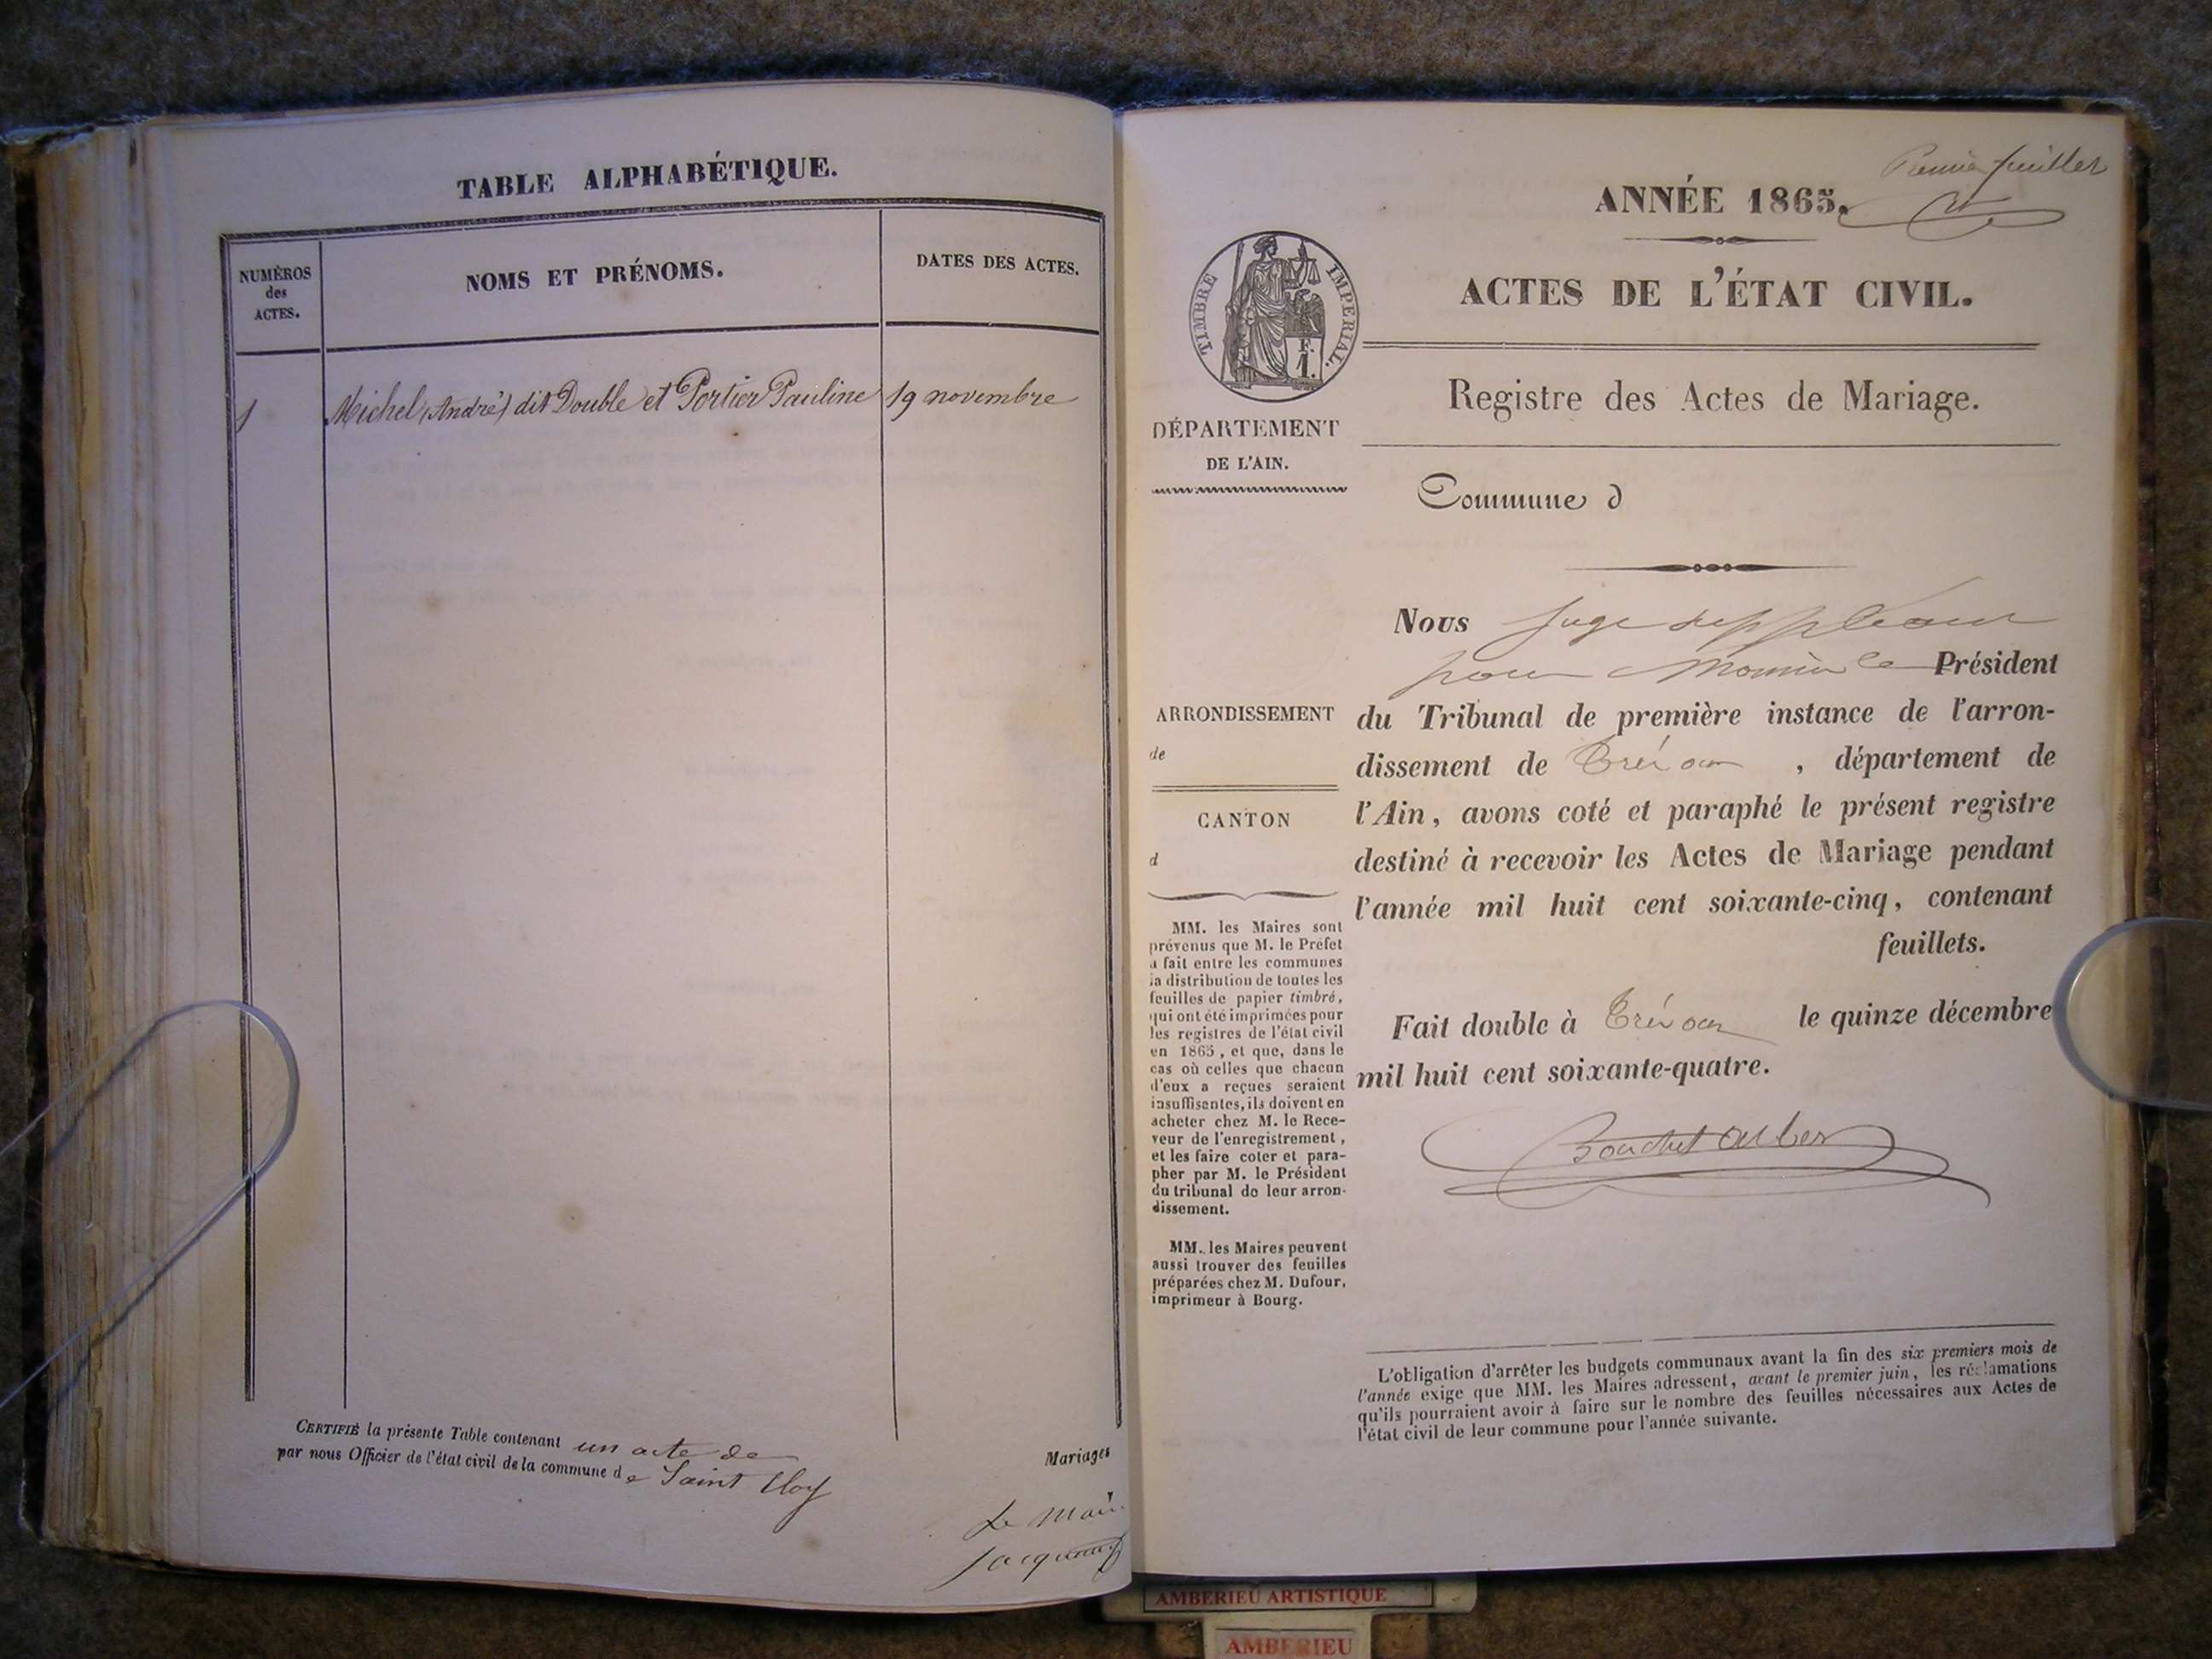 TABLE ALPHABÉTIQUE.
NUMÉROS
des
ACTES.
NOMS ET PRÉNOMS.
DATES DES ACTES.
1
Michel (André) dit Double et Portier Pauline
19 novembre
CERTIFIÉ la présente Table contenant un acte de Mariages
par nous Officier de l'état civil de la commune de Saint Eloy
Le Maire
Premier feuillet
ANNÉE 1865.
ACTES DE L'ÉTAT CIVIL.
TIMBRE IMPERIAL.
F.
1.
Registre des Actes de Mariage.
DÉPARTEMENT
DE L'AIN.
Commune d
ARRONDISSEMENT
de
CANTON
d
MM. les Maires sont
prévenus que M. le Préfet
a fait entre les communes
la distribution de toutes les
feuilles de papier timbré,
qui ont été imprimées pour
les registres de l'état civil
en 1865, et que, dans le
cas où celles que chacun
d'eux a reçues seraient
insuffisantes, ils doivent en
acheter chez M. le Rece-
veur de l'enregistrement,
et les faire coter et para-
pher par M. le Président
du tribunal de leur arron-
dissement.
MM. les Maires peuvent
aussi trouver des feuilles
préparées chez M. Dufour,
imprimeur à Bourg.
Nous Juge suppléant
pour Monsieur le Président
du Tribunal de première instance de l'arron-
dissement de Trévoux, département de
l'Ain, avons coté et paraphé le présent registre
destiné à recevoir les Actes de Mariage pendant
l'année mil huit cent soixante-cinq, contenant
feuillets.
Fait double à Trévoux le quinze décembre
mil huit cent soixante-quatre.
L'obligation d'arrêter les budgets communaux avant la fin des six premiers mois de
l'année exige que MM. les Maires adressent, avant le premier juin, les réclamations
qu'ils pourraient avoir à faire sur le nombre des feuilles nécessaires aux Actes de
l'état civil de leur commune pour l'année suivante.
AMBERIEU ARTISTIQUE
AMBERIEU